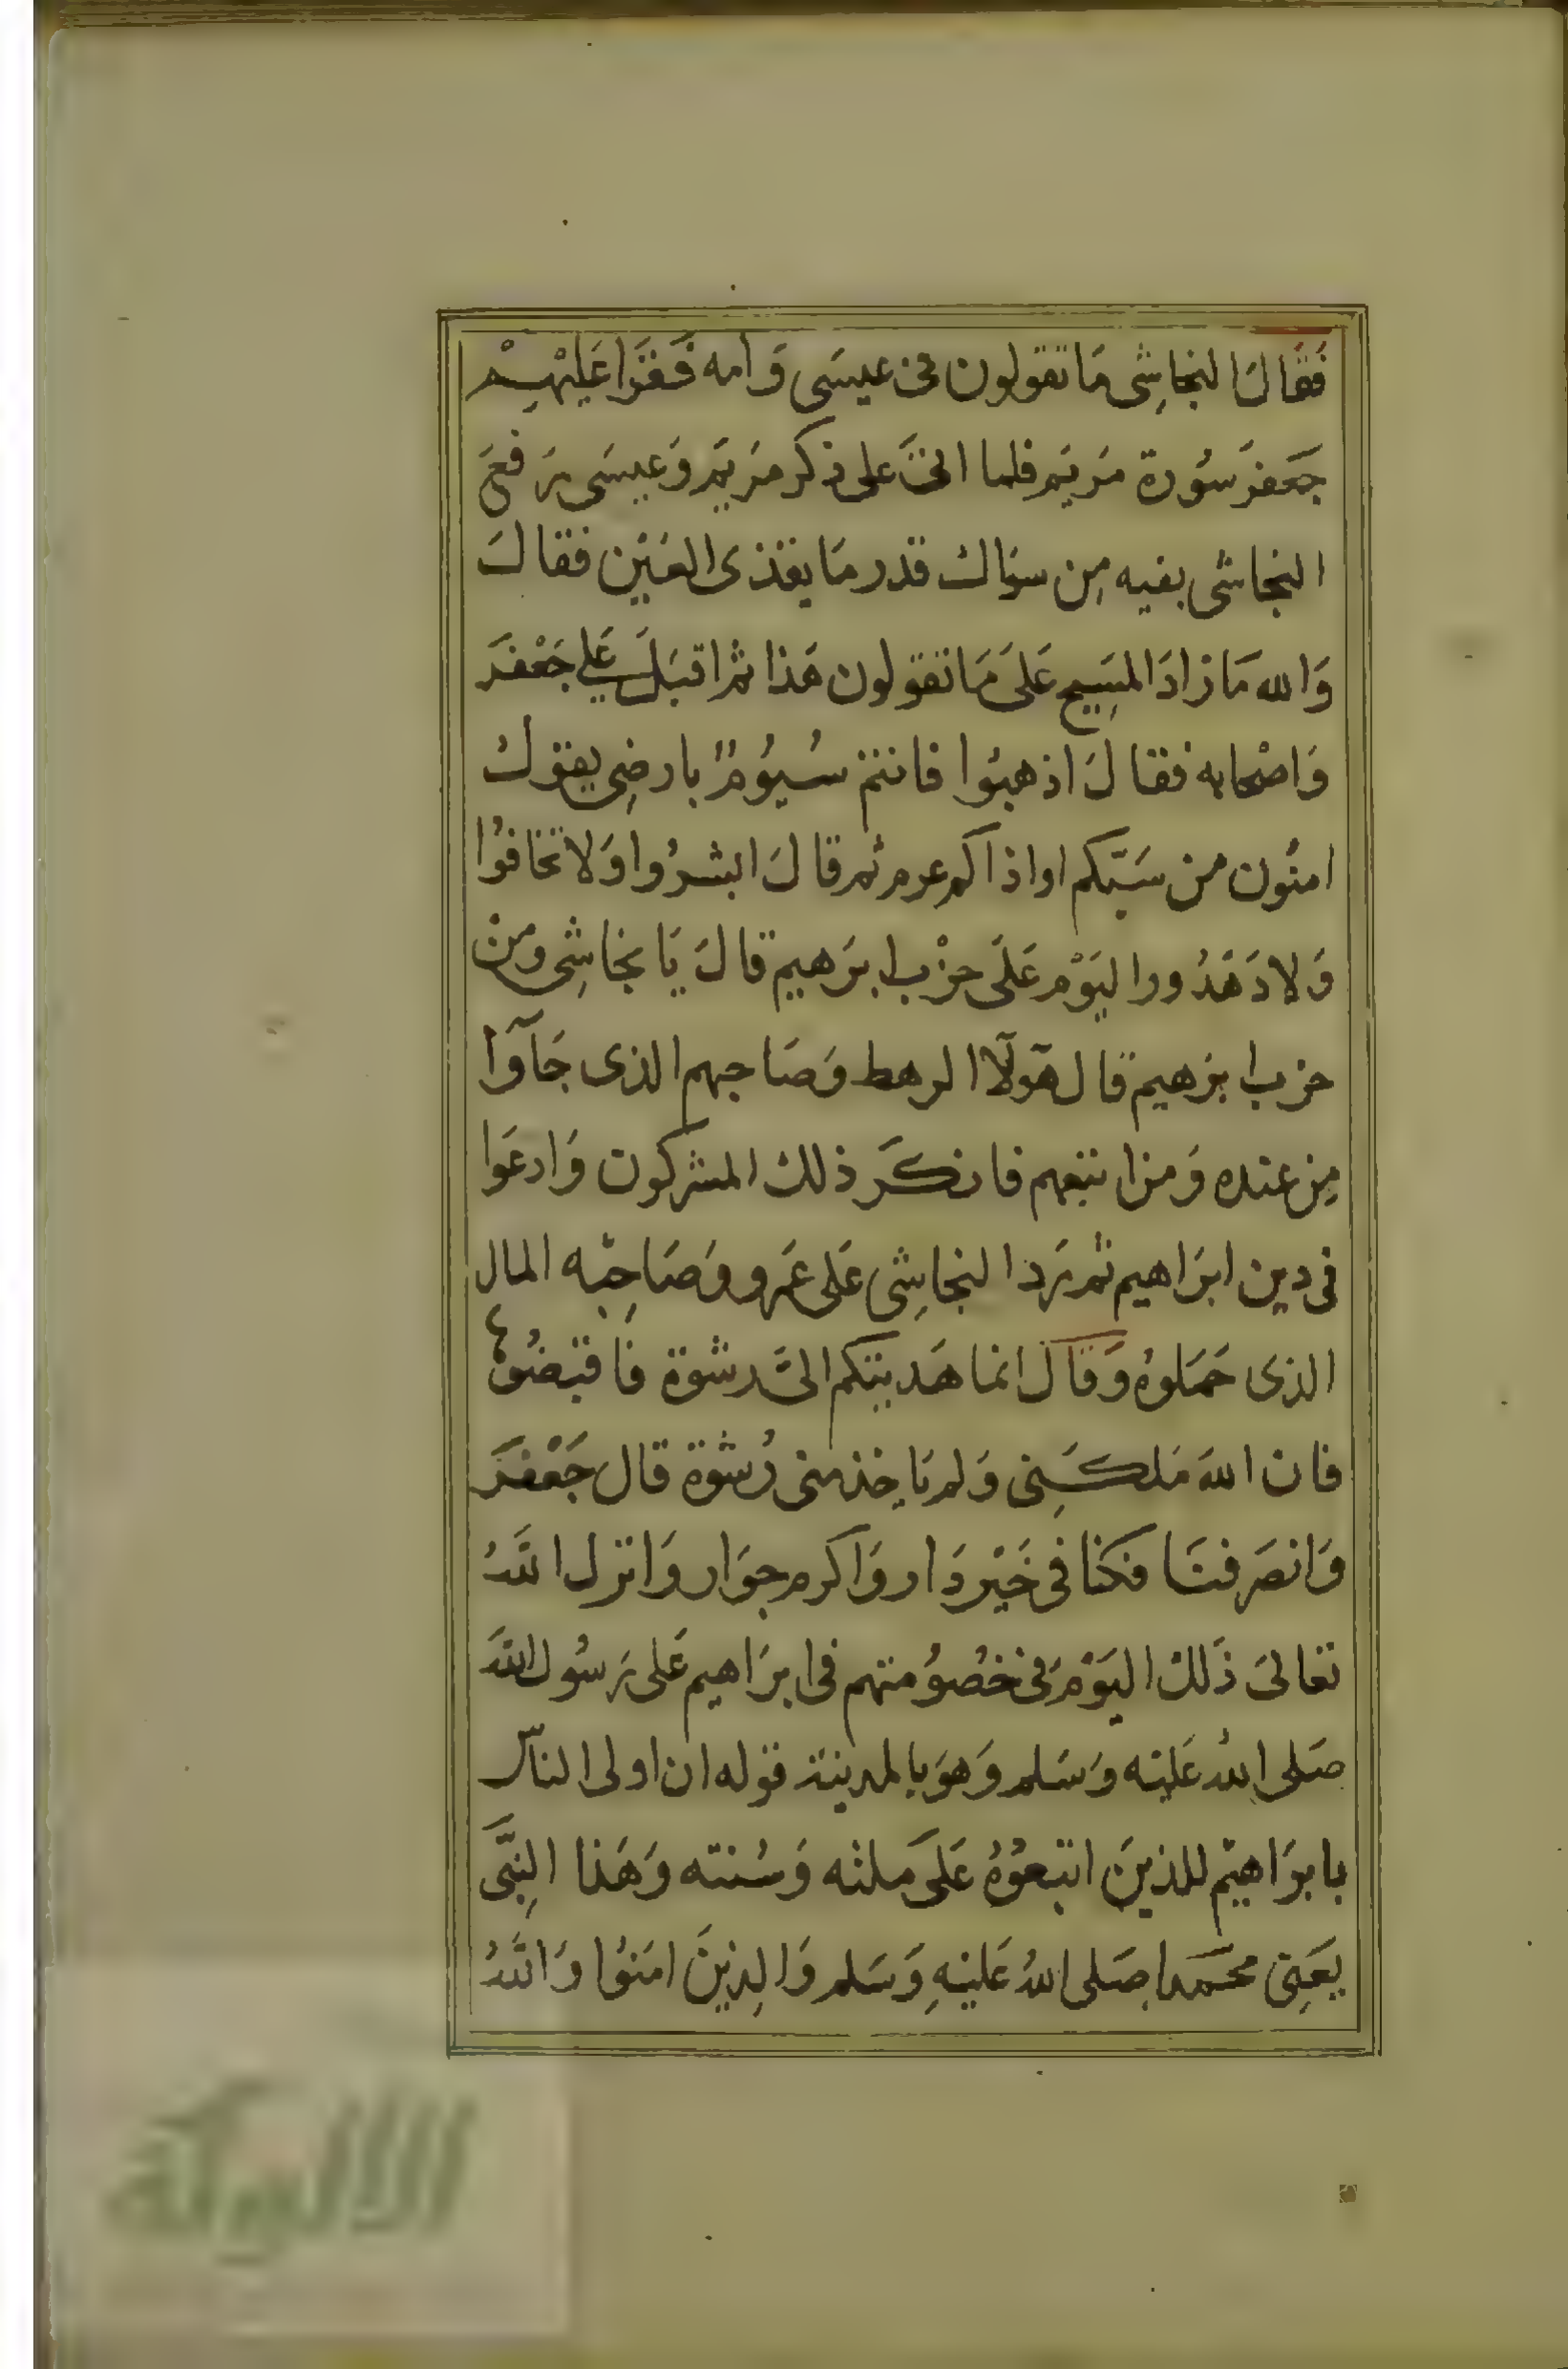 فَقَالَ النجاشِى مَا تقولون فى عيسَى وَامه فَقرَا عَلَيْهِمْ
جَعفر سُورة مَريَم فلما اتى عَلى ذكر مَريَم وَعيسَى رَفعَ
النجاشى بفيه مِن سوَاك قدر مَا يقذى العَيْن فقالَ
وَالله مَا زادَ المسِيح عَلَى مَا تقولون هَذا ثم اقبَلَ عَلى جَعْفرَ
وَاصْحابه فقالَ اذهبُوا فانتم سُيُومٌ بارضِى يقولُ
امنُون من سَبّكم اواذاكم غرم ثم قالَ ابشرُوا وَلا تخافُوا
وَلا دَهْدُورا اليَوْم عَلَى حزْب ابرَهيم قالَ يَا نجاشِى ومن
حزب ابرَهيم قال هَولآ الرهط وَصَاحبهم الذى جَآوُا
مِن عنده وَمن اتبعهم فانكَر ذلك المشركون وَادعَوا
فى دين ابرَاهيم ثم رَد النجاشِى عَلى عَمرو وَصَاحِبه المال
الذى حَمَلوهُ وَقال انما هَديتكم الىَّ رشوة فاقبضُوهَا
فان اللهَ مَلكَنِى وَلم يَاخذ منى رُشوة قال جَعْفرَ
وَانصَرفنَا فكنا فى خَيْر دَار وَاكرم جوَار وَانزل اللّهُ
تعَالىَ ذَلكَ اليَوْمَ فى خصُومتهم فى ابرَاهيم عَلى رَسُول اللهَ
صَلى اللهُ عَليْه وَسَلم وَهوَ بالمدينة قوله ان اولى الناس
بابرَاهيْم للذينَ اتبعُوْهُ عَلَى ملته وَسُنته وَهَذا النِبَّى
يعَنِى محَمدا صَلى اللهُ عَليْهِ وَسَلم وَالذِينَ امَنُوا وَاللَّهُ
الألوكة